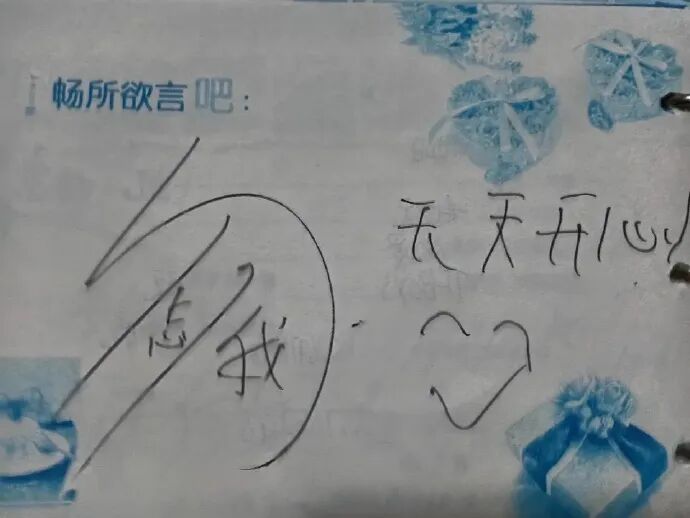 畅所欲言吧：
勿忘我.
天天开心